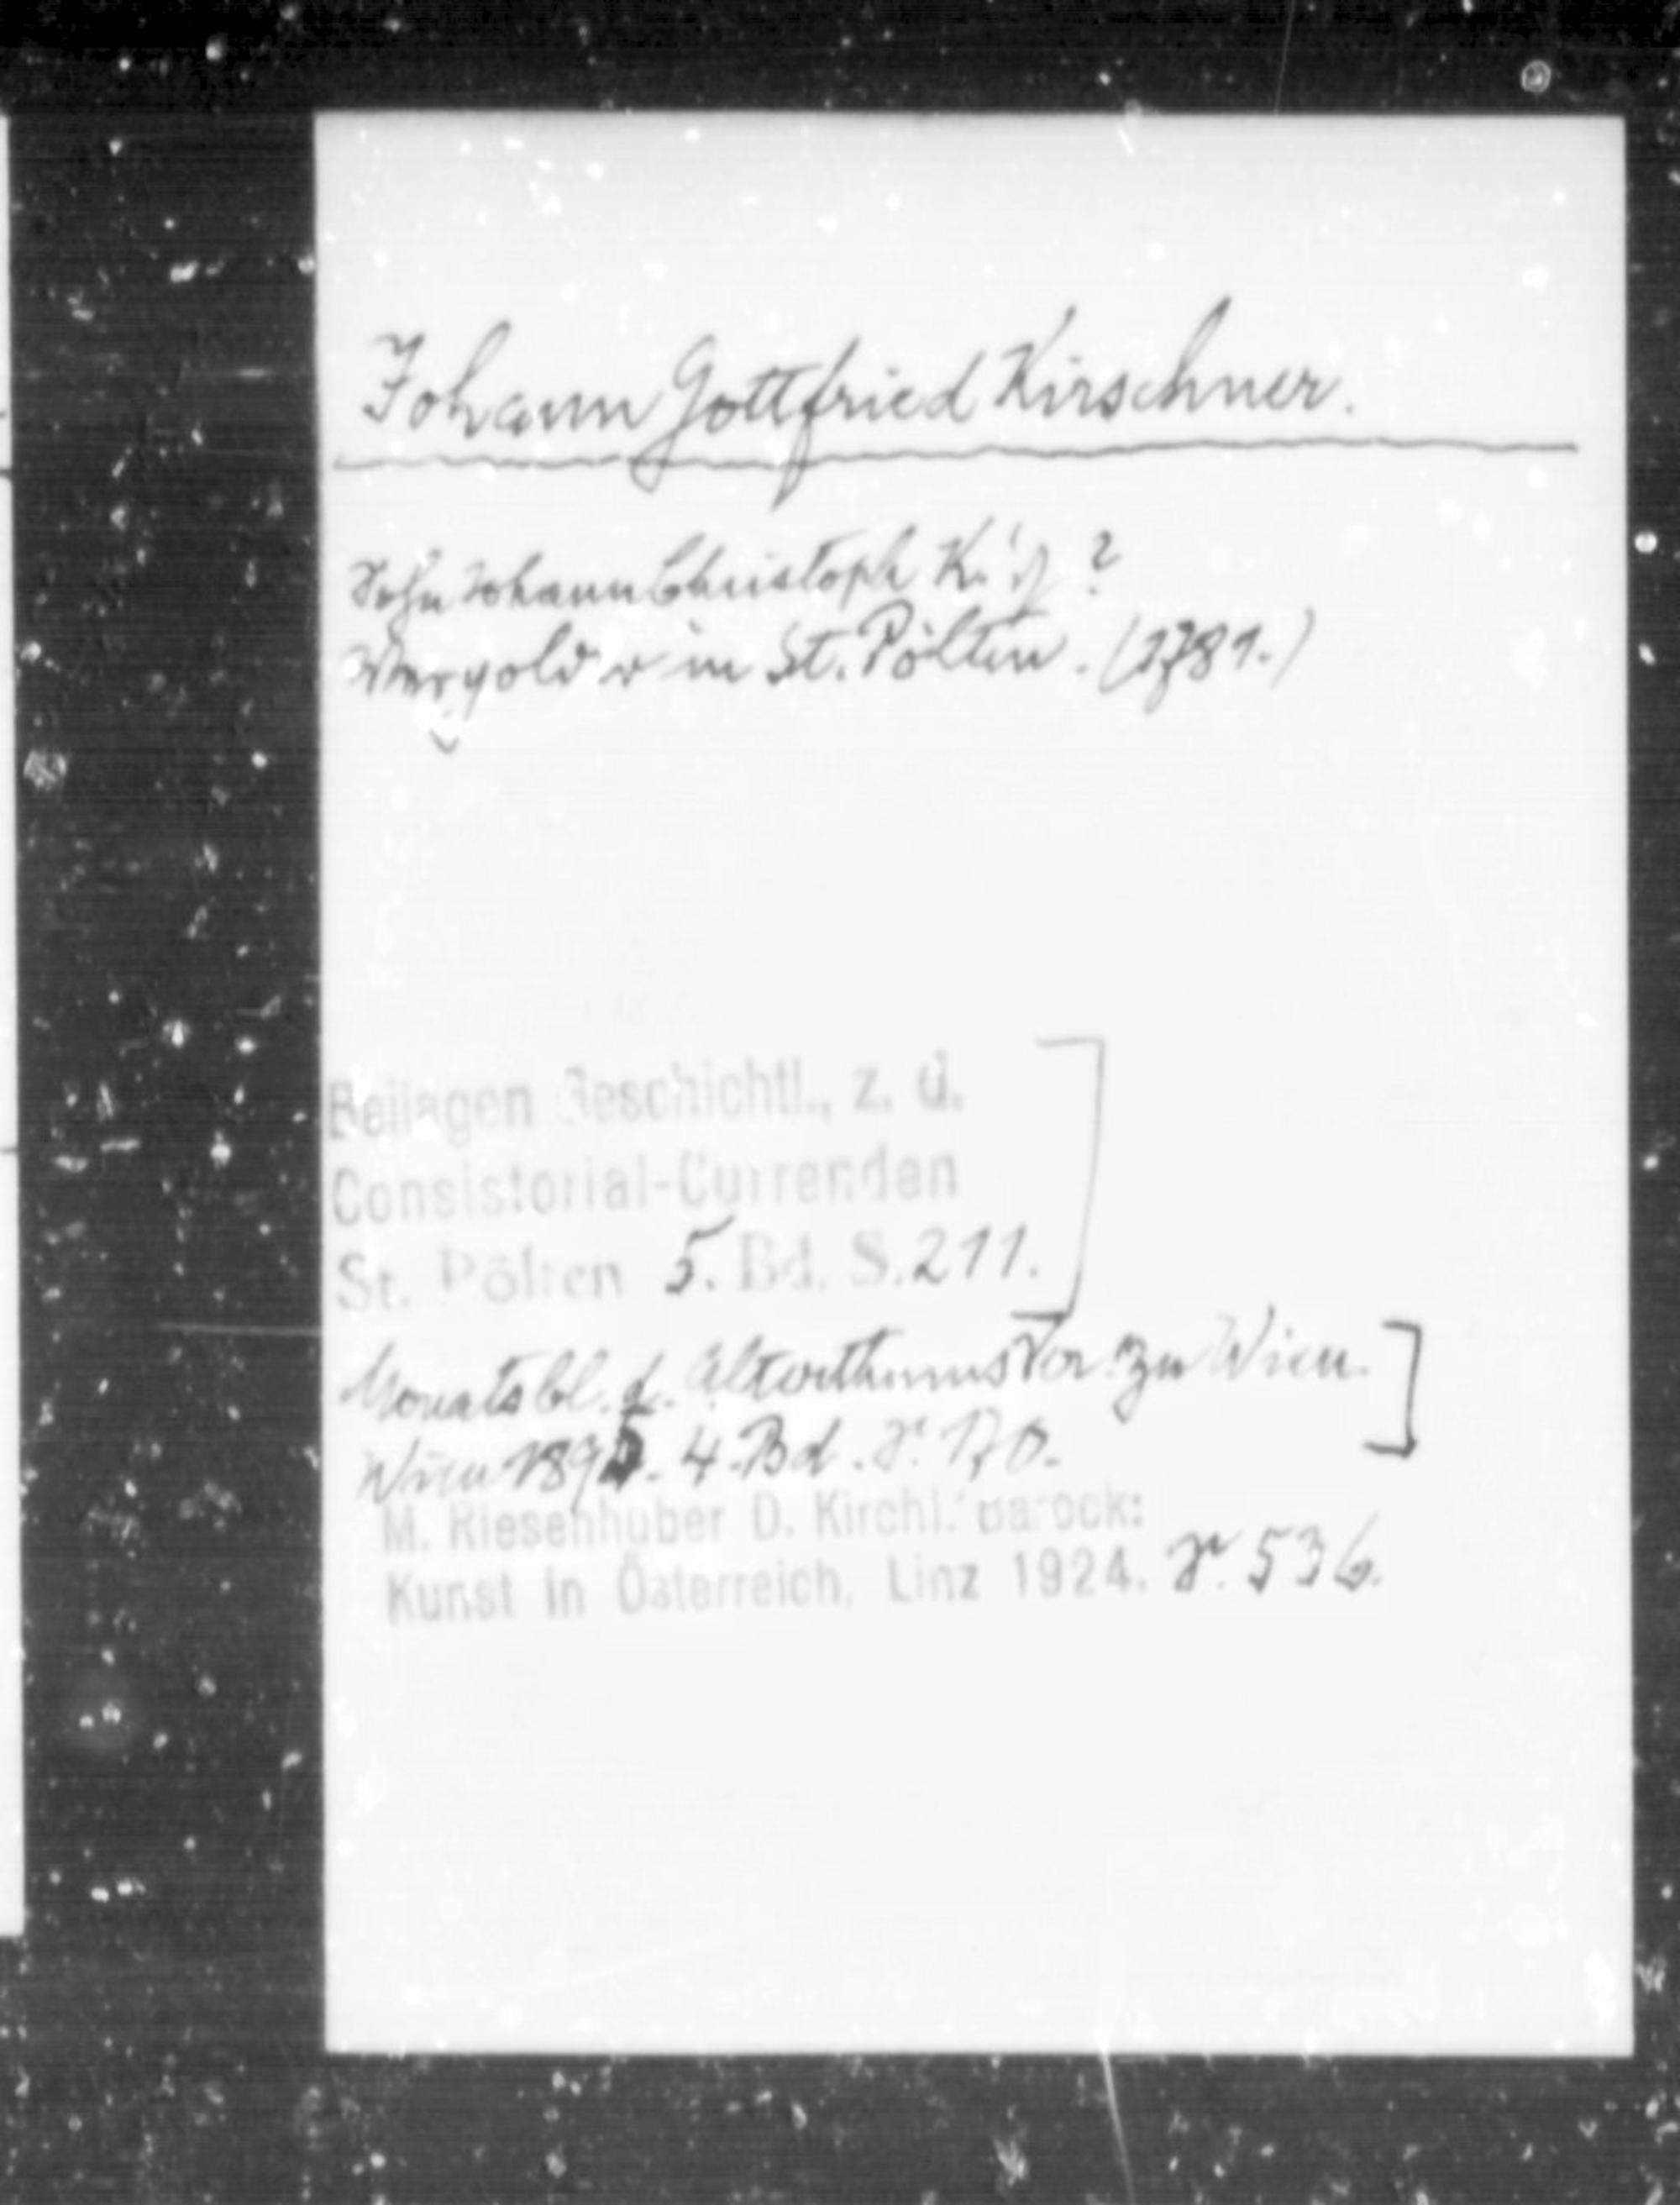 Johann Gottfried Kirschner.
Sohn Johann Christoph K.'s ?
Vergolder in St. Pölten. (1781.)
Beilagen Geschichtl., z. d.
Consistorial-Currenden
St. Pölten 5. Bd. S. 211.
Monatsbl. d. Altertumsver. zu Wien.
Wien 1895. 4. Bd. S. 170.
M. Riesenhuber D. Kirchl. Barock:
Kunst in Österreich, Linz 1924. S. 536.